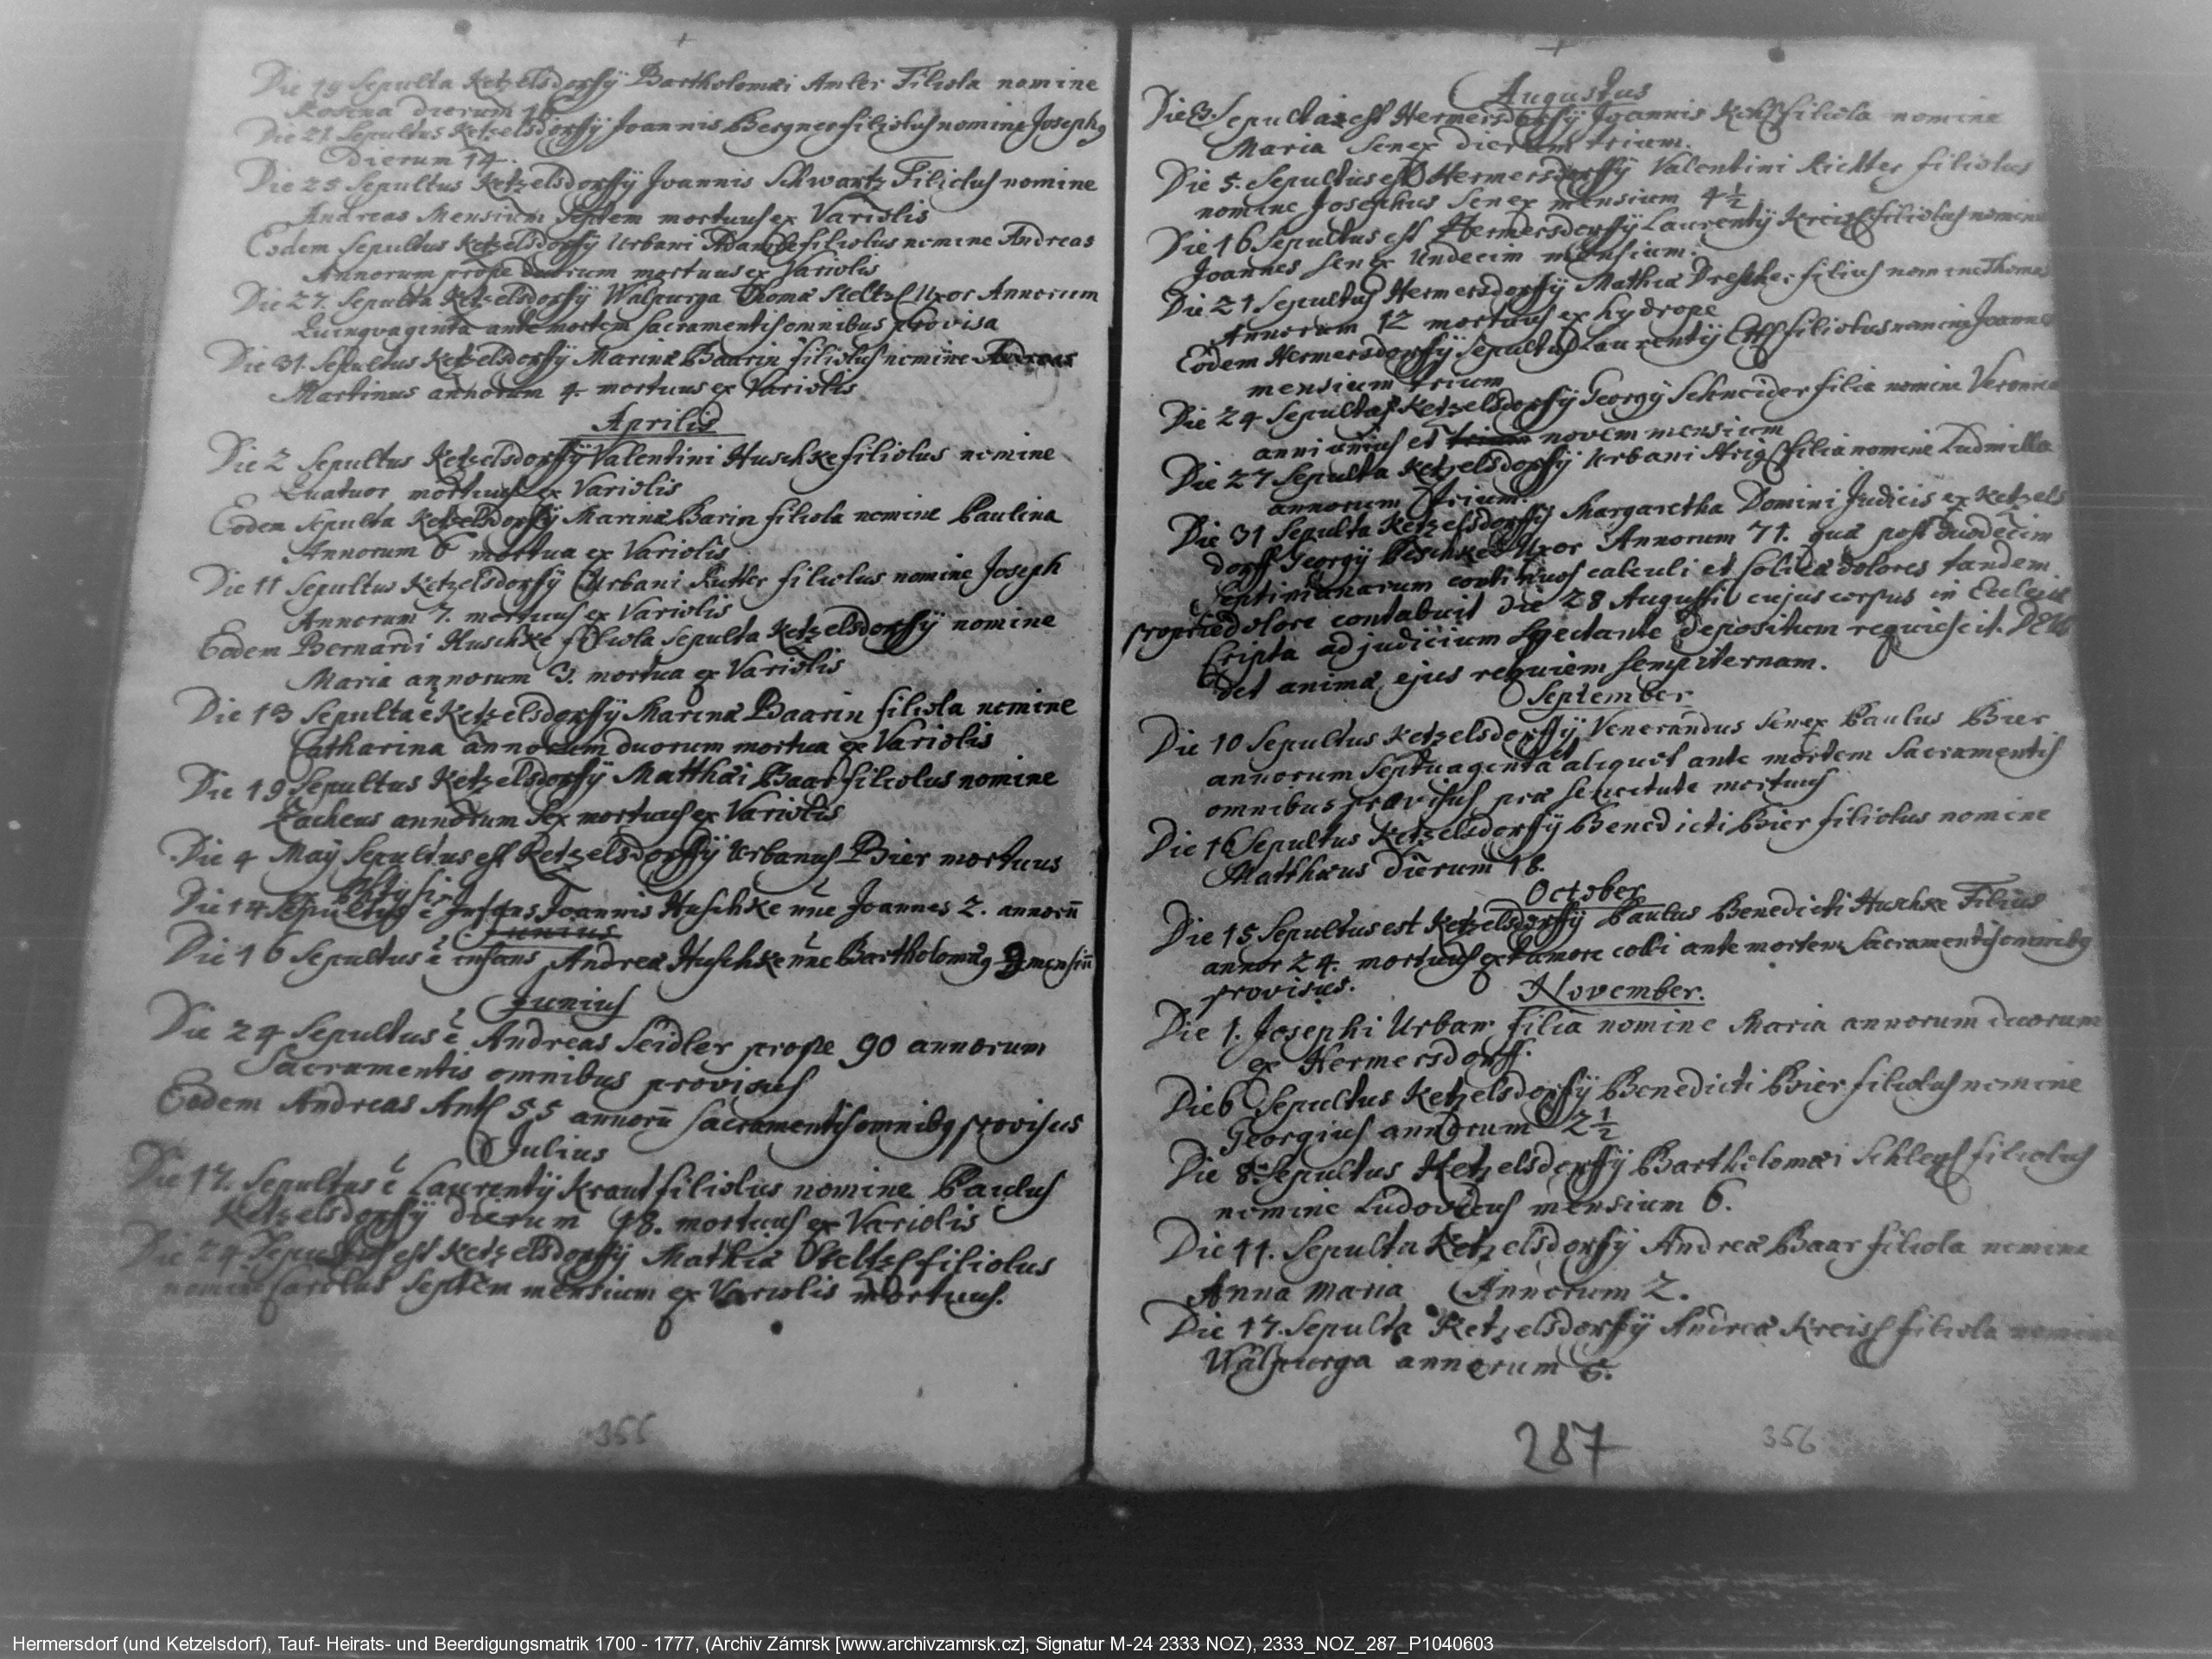 Die 19 Sepulta Ketzelsdorffÿ Bartholomæi Amler Filiola nomine
Rosina dierum
Die 21. Sepultus Ketzelsdorffÿ Joannis Bergner filiolus nomine Joseph9
Dierum 14.
Die 25 Sepultus Ketzelsdorffÿ Joannis Schwartz Filiolus nomine
Andreas Mensium Septem mortuus ex Variolis
Eodem Sepultus Ketzelsdorffÿ Urbani filiolus nomine Andreas
Annorum prope duorum mortuus ex Variolis
Die 27 Sepulta Ketzelsdorffÿ Walpurga Thomæ Steltzl Uxor Annorum
Quinqvaginta ante mortem Sacramentis omnibus provisa
Die 31. Sepultus Ketzelsdorffÿ Marinæ Baarin filiolus nomine Andreas
Martinus annorum 4. mortuus ex Variolis
Aprilis
Die 2 Sepultus Ketzelsdorffÿ Valentini Huschke filiolus nomine
Quatuor mortuus ex Variolis
Eodem Sepulta Ketzelsdorffÿ Marinæ Barin filiola nomine Paulina
Annorum 6 mortua ex Variolis
Die 11 Sepultus Ketzelsdorffÿ Urbani filiolus nomine Joseph
Annorum 7. mortuus ex Variolis
Eodem Bernardi Huschke filiola Sepulta Ketzelsdorffÿ nomine
Maria annorum 3. mortua ex Variolis
Die 13 Sepulta ẽ Ketzelsdorffÿ Marinæ Baarin filiola nomine
Catharina annorum duorum mortua ex Variolis
Die 19 Sepultus Ketzelsdorffÿ Matthæi Baar filiolus nomine
Zacheus annorum Sex mortuus ex Variolis
Die 4 Maÿ Sepultus est Ketzelsdorffÿ Urbanus Bier mortuus
ex Phtysi
Die 14 Sepultus ẽ Infans Joannis Huschke nñe Joannes 2. annorũ
Junius
Die 16 Sepultus ẽ infans Andreæ Huschke nñe Bartholomæ9 9 mensiũ
Junius
Die 24 Sepultus ẽ Andreas Seidler prope 90 annorum
Sacramentis omnibus provisus
Eodem Andreas Antl 55 annorũ Sacramentis omnib9 provisus
Julius
Die 17. Sepultus ẽ Laurentÿ Kraut filiolus nomine Paulus
Ketzelsdorffÿ dierum 18. mortuus ex Variolis
Die 24 Sepultus est Ketzelsdorffÿ Mathiæ Steltzl filiolus
nomine Carolus Septem mensium ex Variolis mortuus.
356
Augustus
Die 3. Sepulta est Hermersdorffÿ Joannis filiola nomine
Maria Senex dierum trium.
Die 5. Sepultus est Hermersdorffÿ Valentini Richter filiolus
nomine Josephus Senex mensium 4 1/2
Die 16 Sepultus est Hermersdorffÿ Laurentÿ filiolus nomine
Joannes Senex Undecim mensium.
Die 21 Sepultus Hermersdorffÿ Mathiæ Drescher filius nomine Thomas
Annorum 12 mortuus ex hydrope
Eodem Hermersdorffÿ Sepultus Laurentÿ filiolus nomine Joannes
mensium trium
Die 24 Sepulta Ketzelsdorffÿ Georgÿ Schneider filia nomine Veronica
anni unius et trium novem mensium
Die 27 Sepulta Ketzelsdorffÿ Urbani filia nomine Ludmilla
annorum trium.
Die 31 Sepulta Ketzelsdorffÿ Margaretha Domini Judicis ex Ketzels
dorff Georgÿ Peschke Uxor Annorum 71. quæ post duodecim
Septimanarum continuos calculi et dolores tandem
proprie dolore contabuit Die 28 Augusti cujus corpus in Ecclesiæ
Cripta ad judicium Spectante depositum requiescit. DEUS
det animæ ejus requiem sempiternam.
September
Die 10 Sepultus Ketzelsdorffÿ Venerandus Senex Paulus Bier
annorum Septuaginta aliquot ante mortem Sacramentis
omnibus provisus præ mortuus
Die 16 Sepultus Ketzelsdorffÿ Benedicti Bier filiolus nomine
Matthæus Dierum 18.
October
Die 15 Sepultus est Ketzelsdorffÿ Paulus Benedicti Huschke Filius
annor 24. mortuus ex tumore colli ante mortem Sacramentis omnib9
provisus.
November.
Die 1. Josephi Urban filia nomine Maria annorum duorum
ex Hermersdorff.
Die 6 Sepultus Ketzelsdorffÿ Benedicti Bier filiolus nomine
Georgius annorum 2 1/2
Die 8 Sepultus Ketzelsdorffÿ Bartholomæi filiolus
nomine Ludovicus mensium 6.
Die 11. Sepulta Ketzelsdorffÿ Andreæ Baar filiola nomine
Anna Maria Annorum 2.
Die 17. Sepulta Ketzelsdorffÿ Andreæ filiola nomine
Walpurga annorum
287 356
Hermersdorf (und Ketzelsdorf), Tauf- Heirats- und Beerdigungsmatrik 1700 - 1777, (Archiv Zámrsk [www.archivzamrsk.cz], Signatur M-24 2333 NOZ), 2333_NOZ_287_P1040603